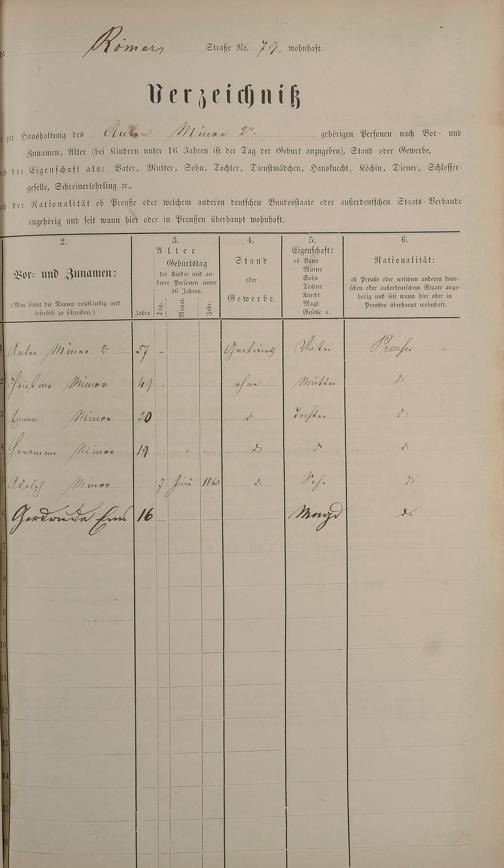 Römer Straße No. 79. wohnhaft.
Verzeichniß
zur Haushaltung des Anton Minor 2r. gehörigen Personen nach Vor- und
Zunamen, Alter (bei Kindern unter 16 Jahren ist der Tag der Geburt anzugeben), Stand oder Gewerbe,
der Eigenschaft als: Vater, Mutter, Sohn, Tochter, Dienstmädchen, Hausknecht, Köchin, Diener, Schlosser-
geselle, Schreinerlehrling ꝛc.,
der Nationalität ob Preuße oder welchem anderen deutschen Bundesstaate oder außerdeutschen Staats-Verbande
angehörig und seit wann hier oder in Preußen überhaupt wohnhaft.
2. 3. 4. 5. 6.
Vor- und Zunamen:
(Man bittet die Namen vollständig und leserlich zu schreiben.)
Alter
Jahre.
Geburtstag
der Kinder und anderer Personen unter 16 Jahren.
Tag. Monat. Jahr.
Stand
oder
Gewerbe.
Eigenschaft:
ob Vater
Mutter
Sohn
Tochter
Knecht
Magd
Geselle ꝛc.
Nationalität:
ob Preuße oder welchem anderen deutschen oder außerdeutschen Staate angehörig und seit wann hier oder in Preußen überhaupt wohnhaft.
Anton Minor 2r 57 Vater Preuße
Christine Minor 49 ohne Mutter do
Emma Minor 20 do Tochter do
Hermann Minor 19 do do do
Adolph Minor 7 Juni do Sohn do
Gertrude Ems 16 Magd do